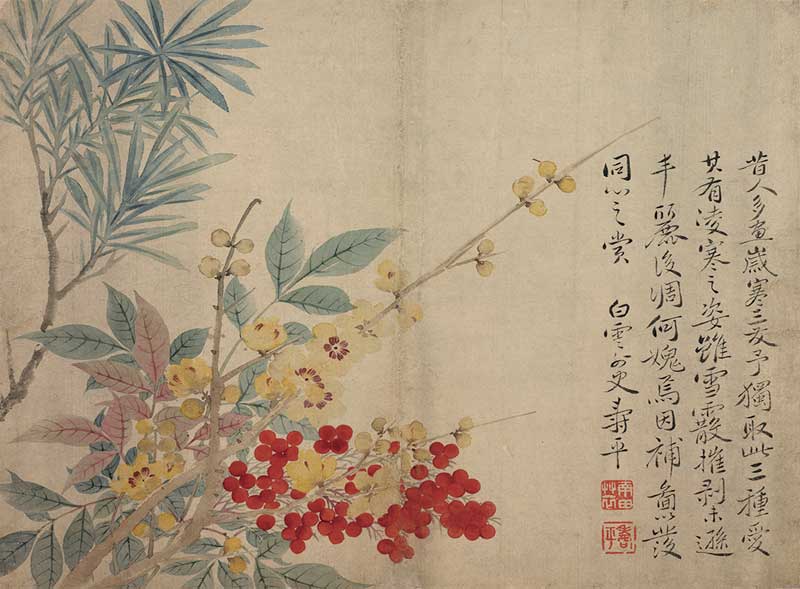 昔人多畫歲寒三友予獨取此三種愛
其有凌寒之姿雖雪霰摧剥未遜
丰麗後凋何媿焉因補圖以發
同心之賞 白雲外史壽平
壽平